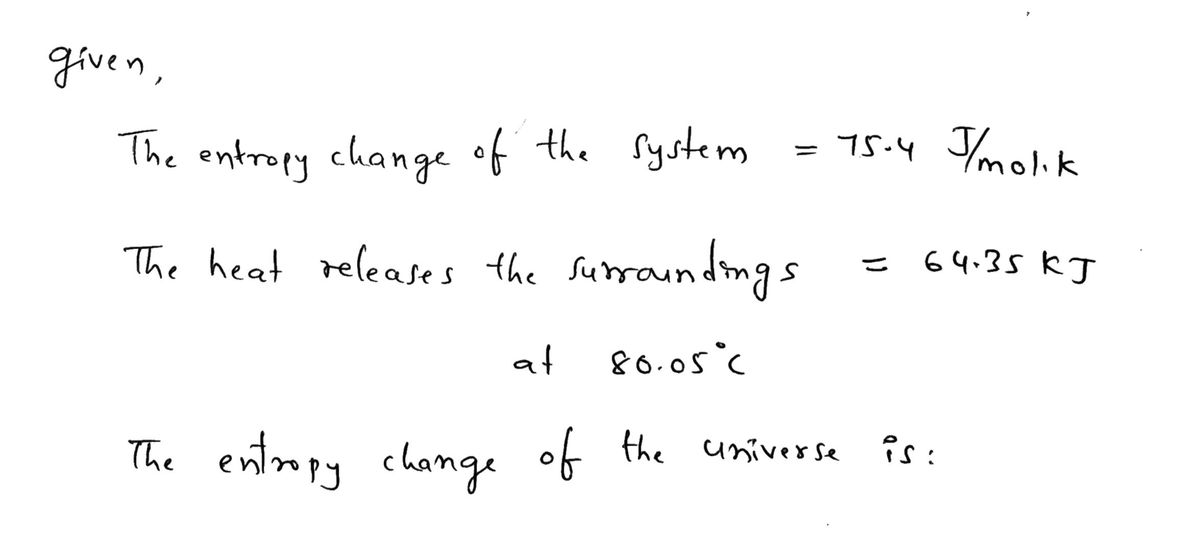 given,
The entropy change of the system = 75.4 J/mol.k
The heat releases the surroundings = 64.35 KJ
at 80.05°C
The entropy change of the universe is: